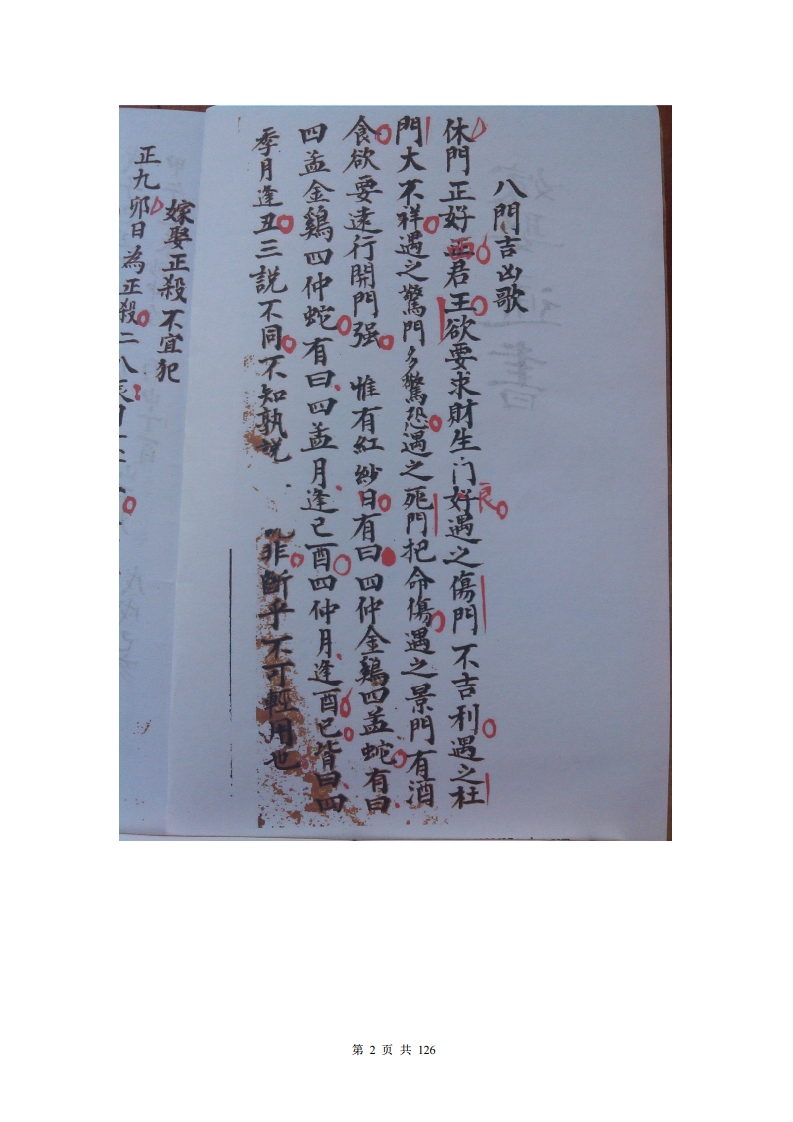 八門吉凶歌
休門正好面君王欲要求財生门好良遇之傷門不吉利遇之杜
門大不祥遇之驚門多驚恐遇之死門把命傷遇之景門有酒
食欲要遠行開門强 惟有紅紗日有曰四仲金鷄四孟蛇有曰
四孟金鷄四仲蛇有曰四孟月逢已酉四仲月逢酉已皆曰四
季月逢丑三説不同不知孰説 非斷乎不可輕用也
嫁娶正殺不宜犯
正九卯日為正殺二八辰
第 2 页 共 126